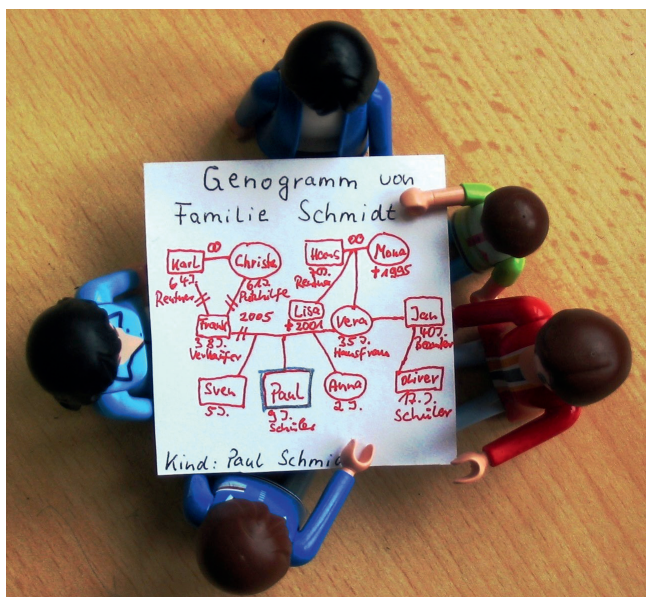 Genogramm von
Familie Schmidt
Karl
∞
Christa
Hans
∞
Mona
64J.
Rentner
61J.
Rentner
†1995
Frank
2005
Lisa
†2001
Vera
Jan
38J.
Verkäufer
35J.
Hausfrau
40J.
Beamter
Sven
Paul
Anna
Oliver
5J.
9J.
Schüler
2J.
17J.
Schüler
Kind: Paul